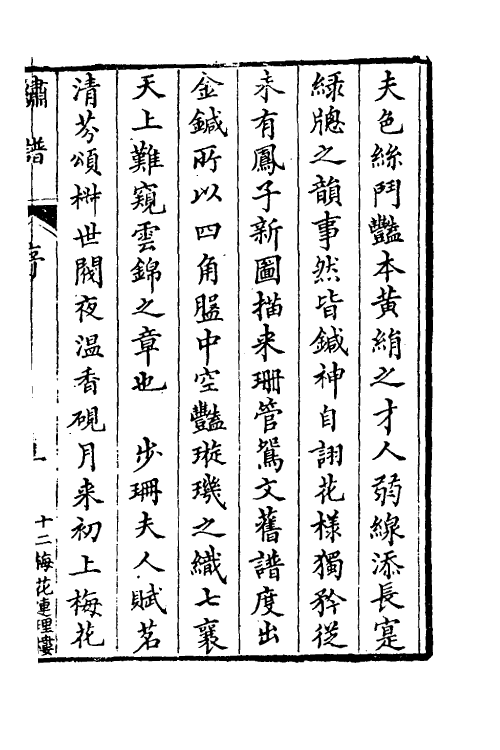 夫色絲鬥豔本黃絹之才人弱線添長寔
綠牕之韻事然皆鍼神自詡花樣獨矜從
未有鳳子新圖描来珊管鴛文舊譜度出
金鍼所以四角盤中空豔璇璣之織七襄
天上難窺雲錦之章也　步珊夫人賦茗
清芬頌椒世閥夜温香硯月来初上梅花
繡譜
序
十二梅花連理樓